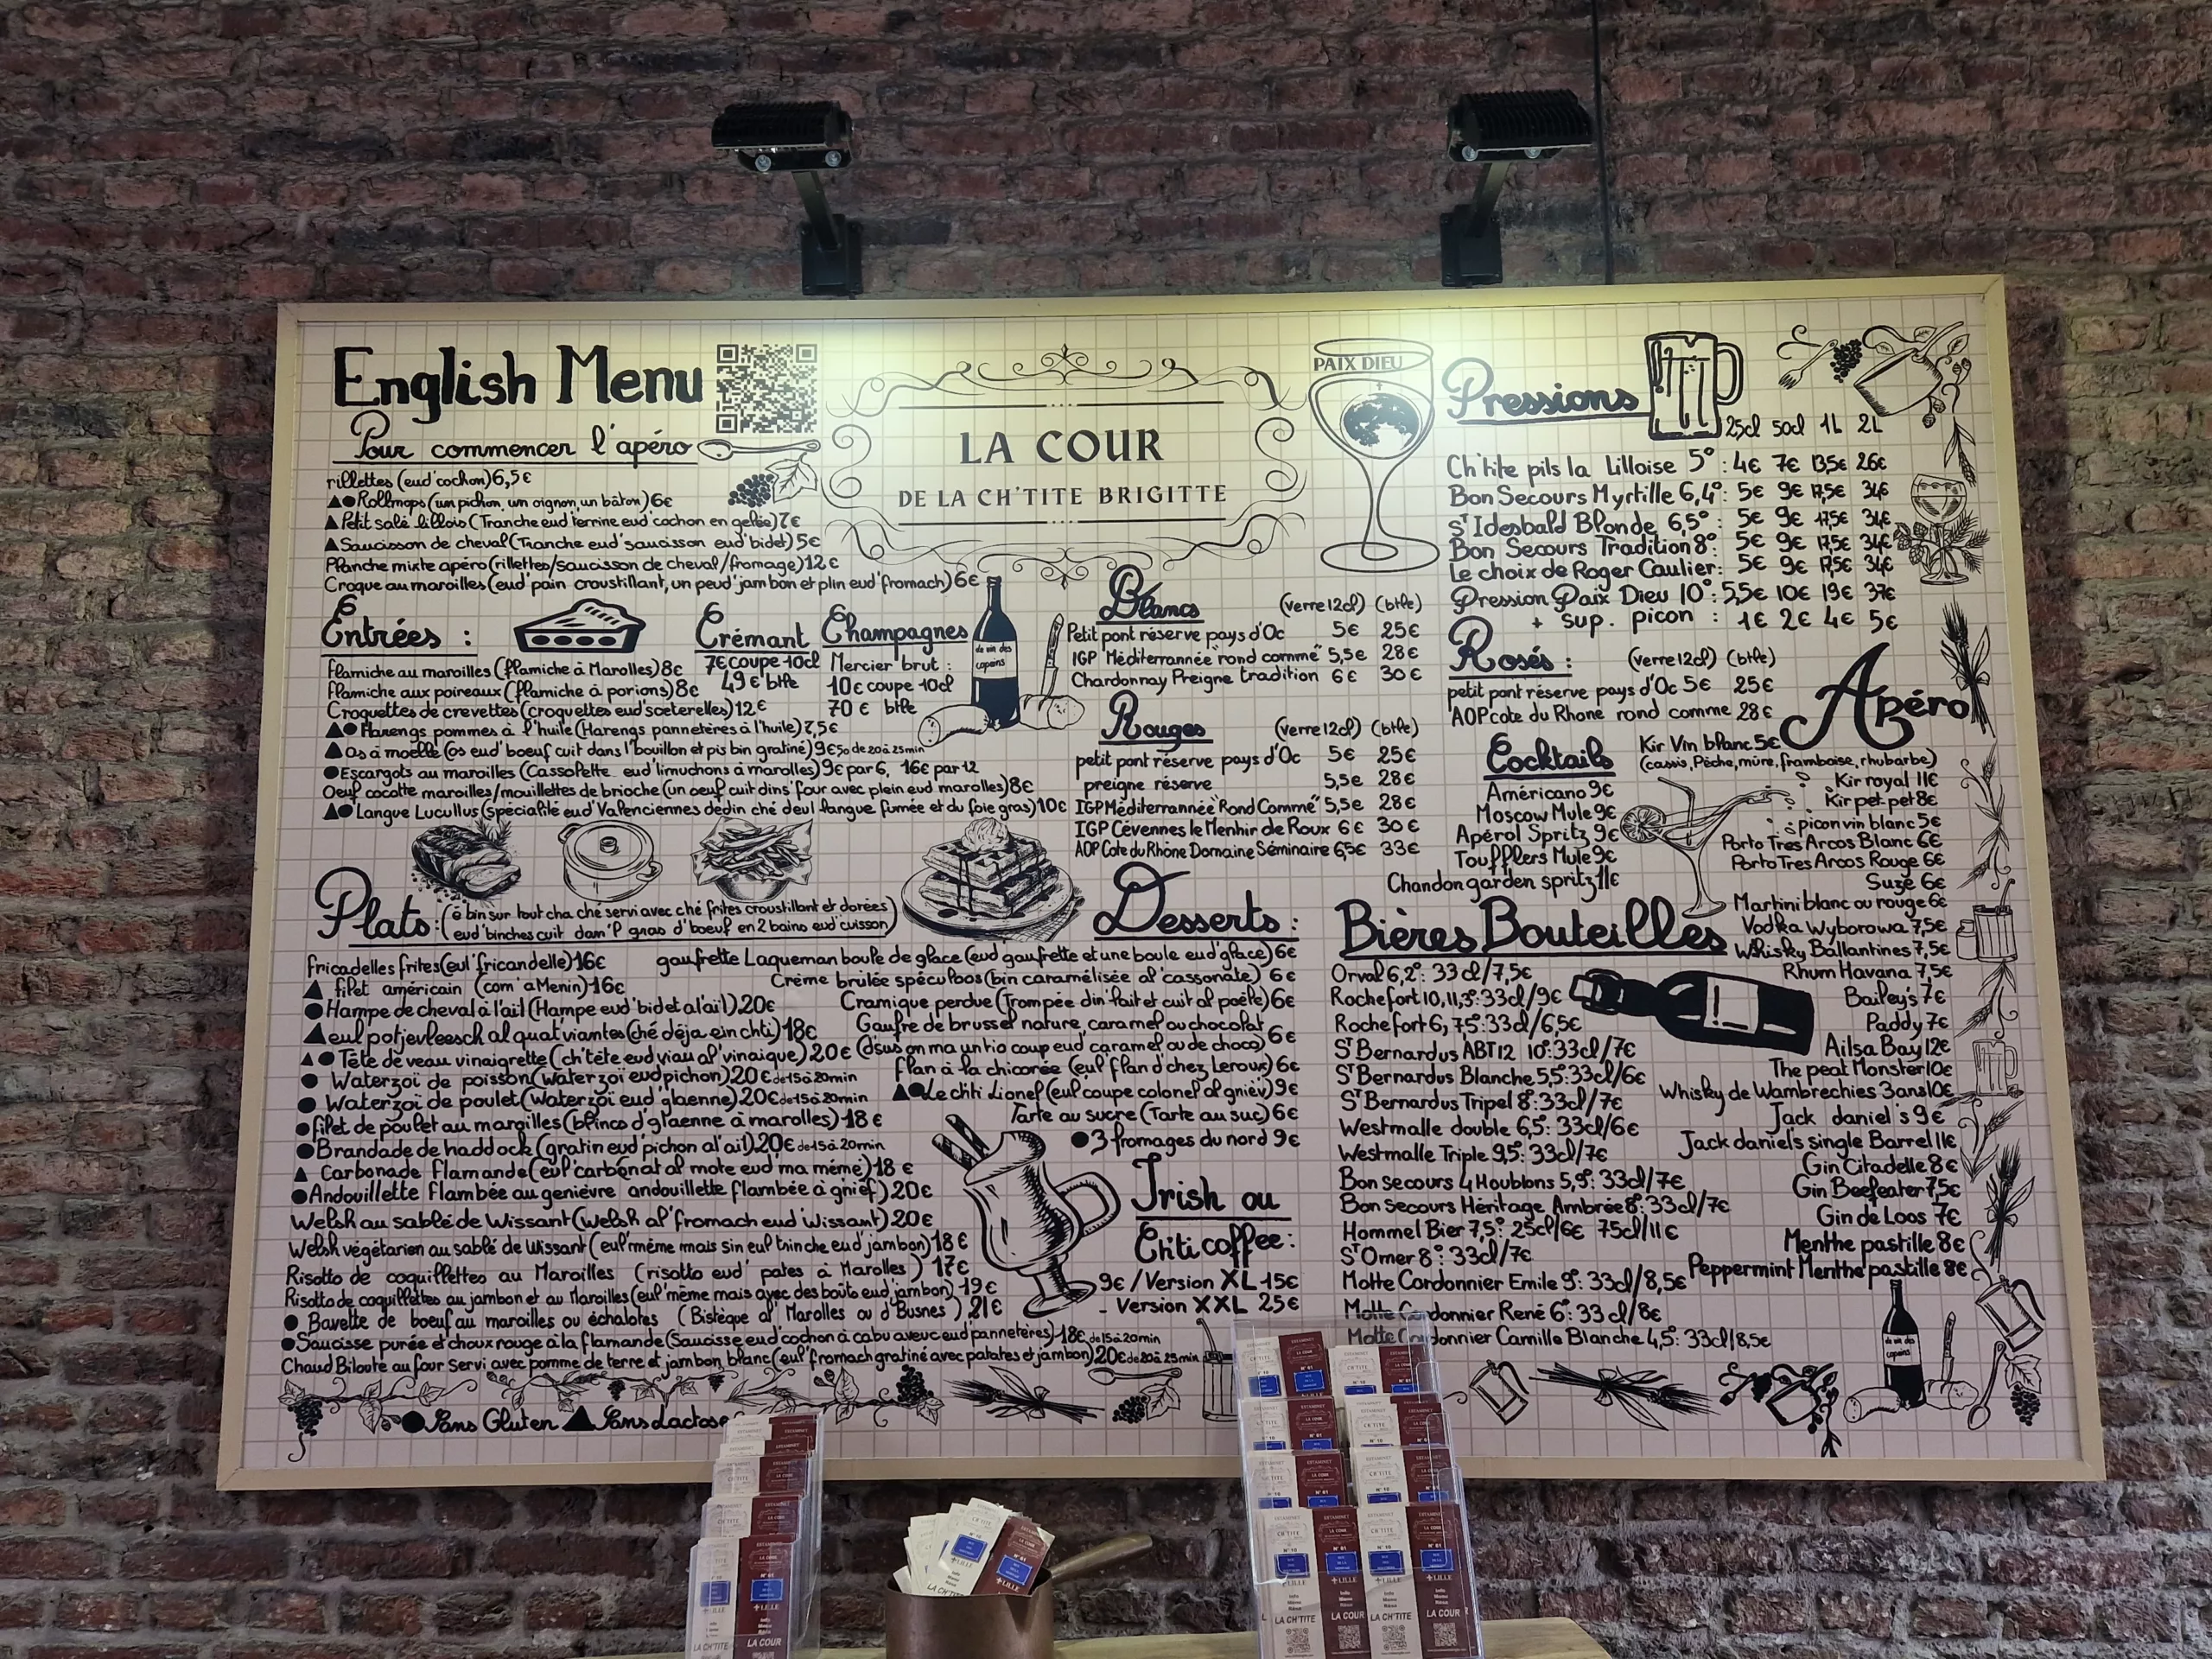 English Menu
Pour commencer l'apéro
rillettes (eud'cochon) 6,5€
▲●Rollmops (un pichon, un oignon, un bâton) 6€
▲Petit salé lillois (Tranche eud'terrine eud'cochon en gelée) 7€
▲Saucisson de cheval (Tranche eud'saucisson eud'bidet) 5€
Planche mixte apéro (rillettes/saucisson de cheval/fromage) 12€
Croque au maroilles (eud'pain croustillant, un peud'jambon et plin eud'fromach) 6€
LA COUR
DE LA CH'TITE BRIGITTE
Entrées :
flamiche au maroilles (flamiche à Marolles) 8€
flamiche aux poireaux (flamiche à porions) 8€
Croquettes de crevettes (croquettes eud'sceterelles) 12€
▲●Harengs pommes à l'huile (Harengs pannetères à l'huile) 7,5€
▲os à moelle (os eud'boeuf cuit dans l'bouillon et pis bin gratiné) 9€50 de 20 à 25min
●Escargots au maroilles (Cassolette eud'limuchons à marolles) 9€ par 6, 16€ par 12
Oeuf cocotte maroilles/mouillettes de brioche (un oeuf cuit dins'four avec plein eud marolles) 8€
▲●Langue Lucullus (spécialité eud'Valenciennes dedin ché d'eul langue fumée et du foie gras) 10€
Crémant
7€ coupe 10cl
49€ btle
Champagnes
Mercier brut :
10€ coupe 10cl
70€ btle
du vin des
copains
Plats : (é bin sur tout cha ché servi avec ché frites croustillant et dorées
eud'binches cuit dam'l' gras d'boeuf en 2 bains eud'cuisson)
fricadelles frites (eul'fricandelle) 16€
▲ filet américain (com' a Menin) 16€
●Hampe de cheval à l'ail (Hampe eud'bidet al'ail) 20€
▲eul potjevleesch al quat'viantes (ché déja ein chti) 18€
▲●Tête de veau vinaigrette (ch'tête eud viau al'vinaique) 20€
● Waterzoi de poisson (waterzoï eud pichon) 20€ de 15 à 20min
● Waterzoi de poulet (waterzoï eud glaenne) 20€ de 15 à 20min
●filet de poulet au maroilles (blincs d'glaenne à marolles) 18€
●Brandade de haddock (gratin eud'pichon al'ail) 20€ de 15 à 20min
▲ Carbonade flamande (eul'carbonat al mote eud'ma mémé) 18€
●Andouillette flambée au genièvre andouillette flambée à gnief) 20€
Welsh au sablé de Wissant (welsh al'fromach eud'Wissant) 20€
Welsh végétarien au sablé de Wissant (eul'même mais sin eul trinche eud'jambon) 18€
Risotto de coquillettes au Maroilles (risotto eud' pates à Marolles) 17€
Risotto de coquillettes au jambon et au Maroilles (eul'même mais avec des boûts eud'jambon) 19€
● Bavette de boeuf au maroilles ou échalotes (Bistèque al' Marolles ou d'Busnes) 21€
●Saucisse purée et choux rouge à la flamande (Saucisse eud'cochon à cabu aveuc eud'pannetères) 18€ de 15 à 20min
Chaud Biloute au four servi avec pomme de terre et jambon blanc (eul'fromach gratiné avec patates et jambon) 20€ de 20 à 25min
●Sans Gluten ▲Sans Lactose
Blancs (verre 12cl) (btle)
Petit pont réserve pays d'Oc 5€ 25€
IGP Méditerrannée "rond commé" 5,5€ 28€
Chardonnay Preigne tradition 6€ 30€
Rouges (verre 12cl) (btle)
petit pont réserve pays d'Oc 5€ 25€
preigne réserve 5,5€ 28€
IGP Méditerrannée "Rond Commé" 5,5€ 28€
IGP Cévennes le Menhir de Roux 6€ 30€
AOP Cote du Rhône Domaine Séminaire 6,5€ 33€
Desserts :
gaufrette Laqueman boule de glace (eud'gaufrette et une boule eud'glace) 6€
Crème brûlée spéculoos (bin caramélisée al'cassonate) 6€
Cramique perdue (Trompée din'lait et cuit al poêle) 6€
Gaufre de brussel nature, caramel ou chocolat
(d'sus on ma un tio coup eud'caramel ou de choco) 6€
flan à la chicorée (eul'flan d'chez Leroux) 6€
▲●Le chti Lionel (eul'coupe colonel al gnièv) 9€
Tarte au sucre (Tarte au suc) 6€
●3 fromages du nord 9€
Irish ou
Ch'ti coffee :
9€ / Version XL 15€
- Version XXL 25€
PAIX DIEU
Pressions
25cl 50cl 1L 2L
Ch'tite pils la Lilloise 5° : 4€ 7€ 13,5€ 26€
Bon Secours Myrtille 6,4° : 5€ 9€ 17,5€ 34€
ST Idesbald Blonde 6,5° : 5€ 9€ 17,5€ 34€
Bon Secours Tradition 8° : 5€ 9€ 17,5€ 34€
Le choix de Roger Caulier : 5€ 9€ 17,5€ 34€
Pression Paix Dieu 10° : 5,5€ 10€ 19€ 37€
+ sup. picon : 1€ 2€ 4€ 5€
Rosés : (verre 12cl) (btle)
petit pont réserve pays d'Oc 5€ 25€
AOP cote du Rhone rond comme 28€
Cocktails
Américano 9€
Moscow Mule 9€
Apérol Spritz 9€
Toufflers Mule 9€
Chandon garden spritz 11€
Apéro
Kir Vin blanc 5€
(cassis, Pêche, mûre, framboise, rhubarbe)
Kir royal 11€
Kir pet-pet 8€
picon vin blanc 5€
Porto Tres Arcos Blanc 6€
Porto Tres Arcos Rouge 6€
Suze 6€
Martini blanc ou rouge 6€
Vodka Wyborowa 7,5€
Whisky Ballantines 7,5€
Rhum Havana 7,5€
Bailey's 7€
Paddy 7€
Ailsa Bay 12€
The peat Monster 10€
Whisky de Wambrechies 3ans 10€
Jack daniel's 9€
Jack daniel's single Barrel 11€
Gin Citadelle 8€
Gin Beefeater 7,5€
Gin de Loos 7€
Menthe pastille 8€
Peppermint Menthe pastille 8€
Bières Bouteilles
Orval 6,2° : 33cl/7,5€
Rochefort 10, 11,3° : 33cl/9€
Rochefort 6, 7,5° : 33cl/6,5€
ST Bernardus ABT12 10° : 33cl/7€
ST Bernardus Blanche 5,5° : 33cl/6€
ST Bernardus Tripel 8° : 33cl/7€
Westmalle double 6,5° : 33cl/6€
Westmalle Triple 9,5° : 33cl/7€
Bon secours 4 Houblons 5,9° : 33cl/7€
Bon secours Héritage Ambrée 8° : 33cl/7€
Hommel Bier 7,5° : 25cl/6€ 75cl/11€
ST Omer 8° : 33cl/7€
Motte Cordonnier Emile 9° : 33cl/8,5€
Motte Cordonnier René 6° : 33cl/8€
Motte Cordonnier Camille Blanche 4,5° : 33cl/8,5€
du vin des
copains
ESTAMINET
CH'TITE
LA COUR
N°10
N°61
LILLE
LA CH'TITE
LA COUR